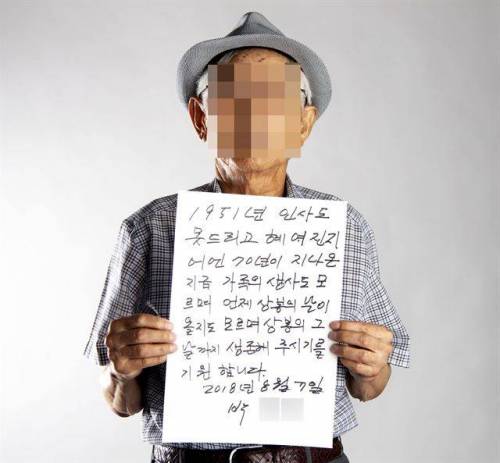 1951년 인사도
못드리고 헤여진지
어언 70년이 지나온
지금 가족의 생사도 모
르며 언제 상봉의 날이
올지도 모르며 상봉의 그
날까지 생존해 주시기를
기원 합니다.
2018년 8월 7일
박